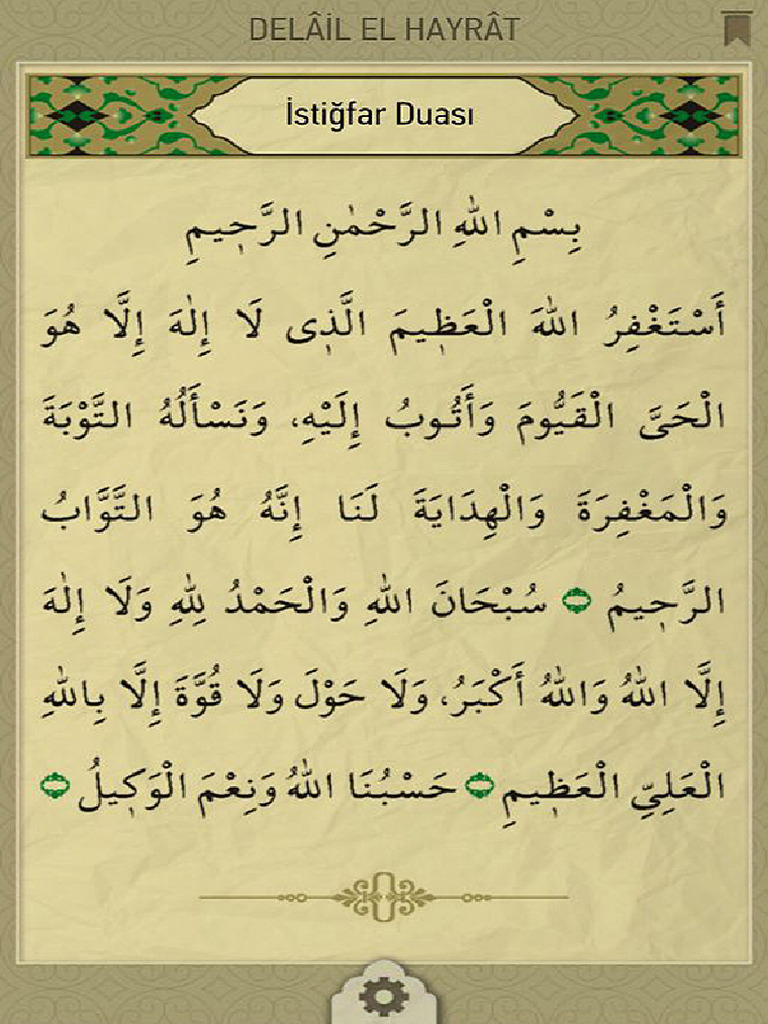 DELÂİL EL HAYRÂT
İstiğfar Duası
بِسْمِ اللهِ الرَّحْمٰنِ الرَّحٖيمِ
أَسْتَغْفِرُ اللهَ الْعَظٖيمَ الَّذٖى لَا إِلٰهَ إِلَّا هُوَ
الْحَىَّ الْقَيُّومَ وَأَتُوبُ إِلَيْهِ، وَنَسْأَلُهُ التَّوْبَةَ
وَالْمَغْفِرَةَ وَالْهِدَايَةَ لَنَا إِنَّهُ هُوَ التَّوَّابُ
الرَّحٖيمُ سُبْحَانَ اللهِ وَالْحَمْدُ لِلهِ وَلَا إِلٰهَ
إِلَّا اللهُ وَاللهُ أَكْبَرُ، وَلَا حَوْلَ وَلَا قُوَّةَ إِلَّا بِاللهِ
الْعَلِيِّ الْعَظٖيمِ حَسْبُنَا اللهُ وَنِعْمَ الْوَكٖيلُ